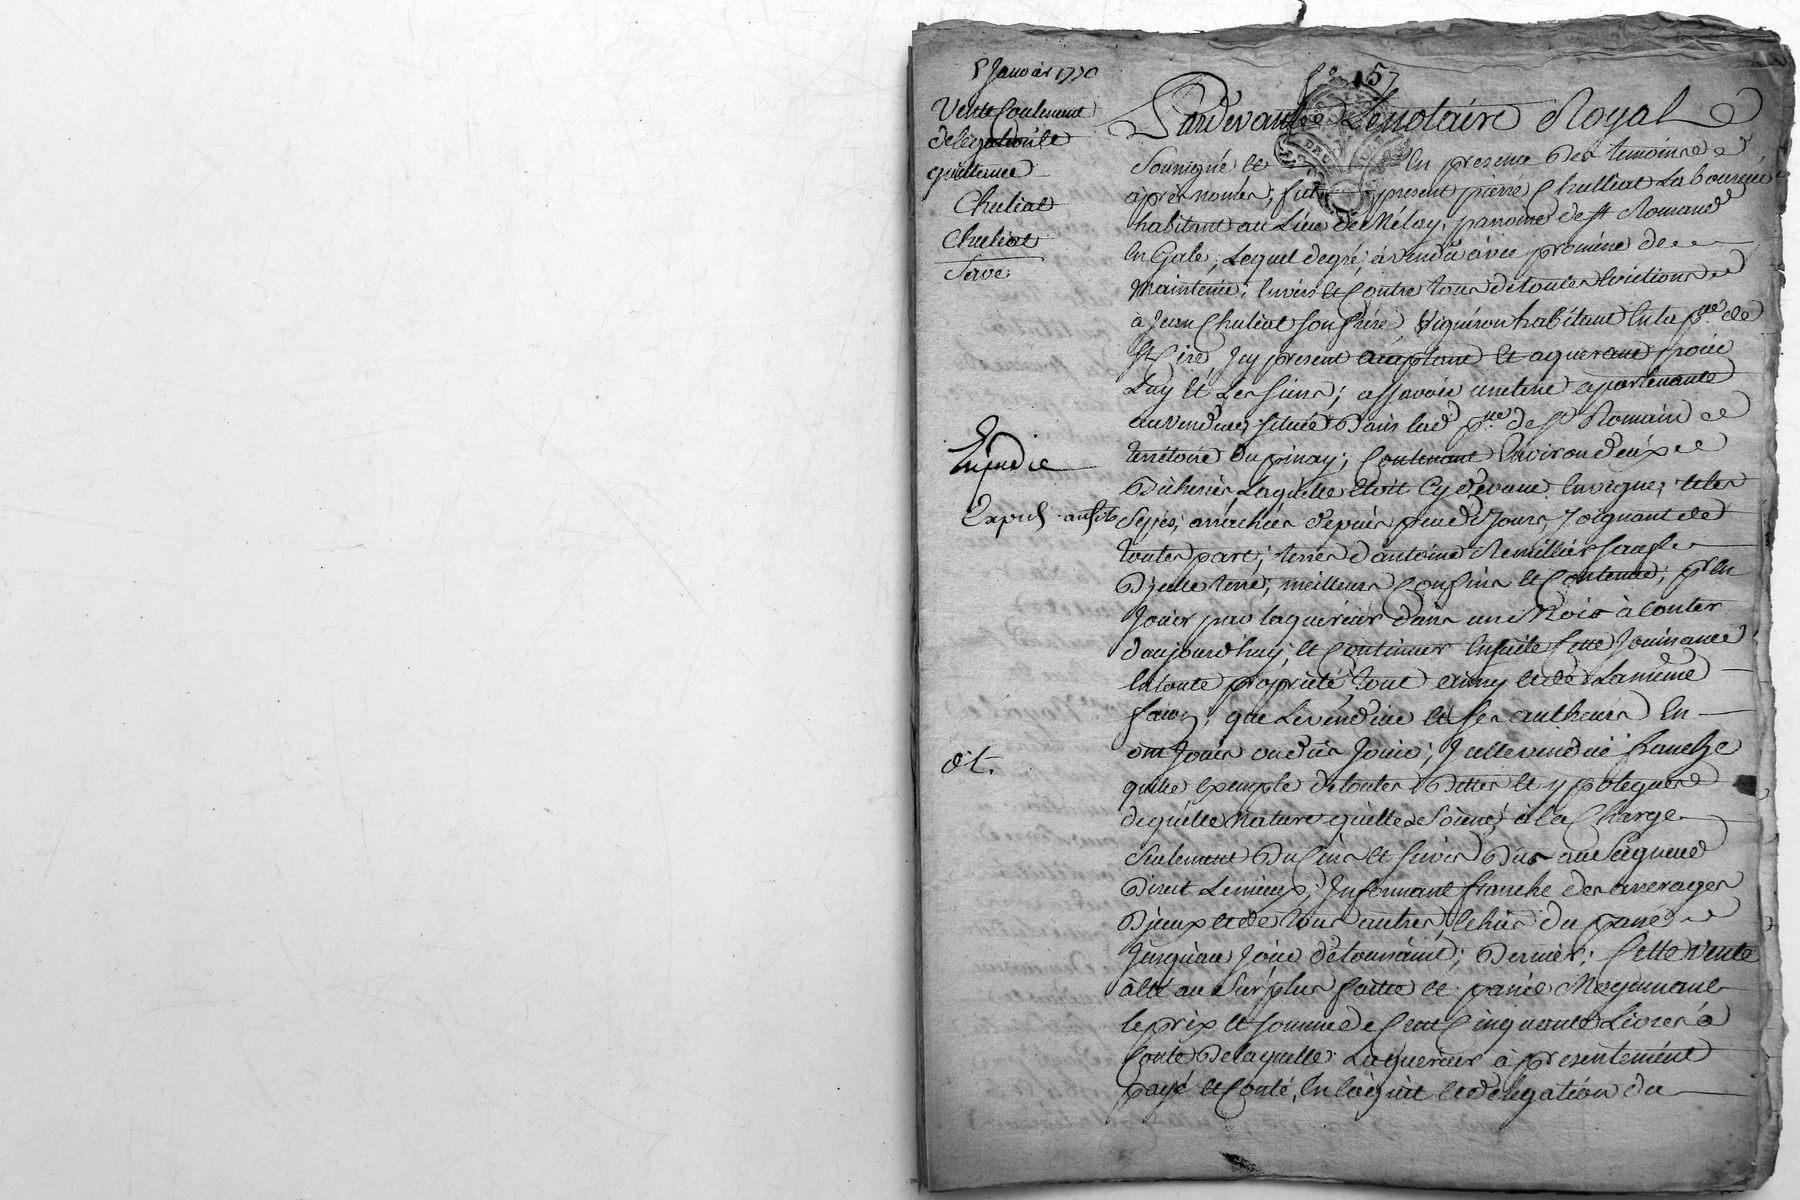 5 Janvier 1770
Vente Contenent
delegation et
quittance
Chuliat
Chuliat
Save
Enjendie
Expud. aus. fe
dt.
fo 157
Pardevant Le notaire Royal
Soussigné et En presence Des temoins
après només, fut present pierre Chulliat Laboureur
habitant au Lieu de Meloy, paroisse de st Romand
En Gale, Lequel degré, à vendu avec promesse de
Maintenir, Envers et Contre tous de toutes Evictions
à Jean Chuliat son frere Vigneron habitant En la psse de
st Cire Icy present acceptant et aquerant pour
Luy et Les siens; assavoir une terre apartenante
au vendeur, située Dans lad psse de st Romain
territoire Du pinay, Contenant Environ deux
Bicherées, Laquelle étoit Cy devant En vigne, et les
Seps, arrachés depuis peu de Jours, Joignant de
toutes part, terres d'antoine Remillier saufs
D'jcelle terre, meilleurs Confins et Contenue, pr En
Jouir par Laquereur dans un Mois à Conter
d'aujourd'huy, et Continuer Ensuite Cette Jouissance
En toute proprieté tout ainsy et de La même
façon, que Le vendeur et ses autheurs En
ont Jouis ou dus Jouir; Jcelle vendue franche
quitte exempte de toutes Dettes et ypoteques
de quelle nature quelle Soient, à la Charge
Seulement Du Cens et servis Dus au Seigneur
Direct Lemieux, Informant franche des arrerages
D'jceux et de tous autres, Echus du passé
Jusqu'au Jour de toussaint, Dernier; Cette Vente
a été au Surplus faitte et passée Moyennant
le prix et somme de Cent Cinquante Livres à
Conte De laquelle Laquereur à presentement
payé et Conté, En l'aquit et delegation du